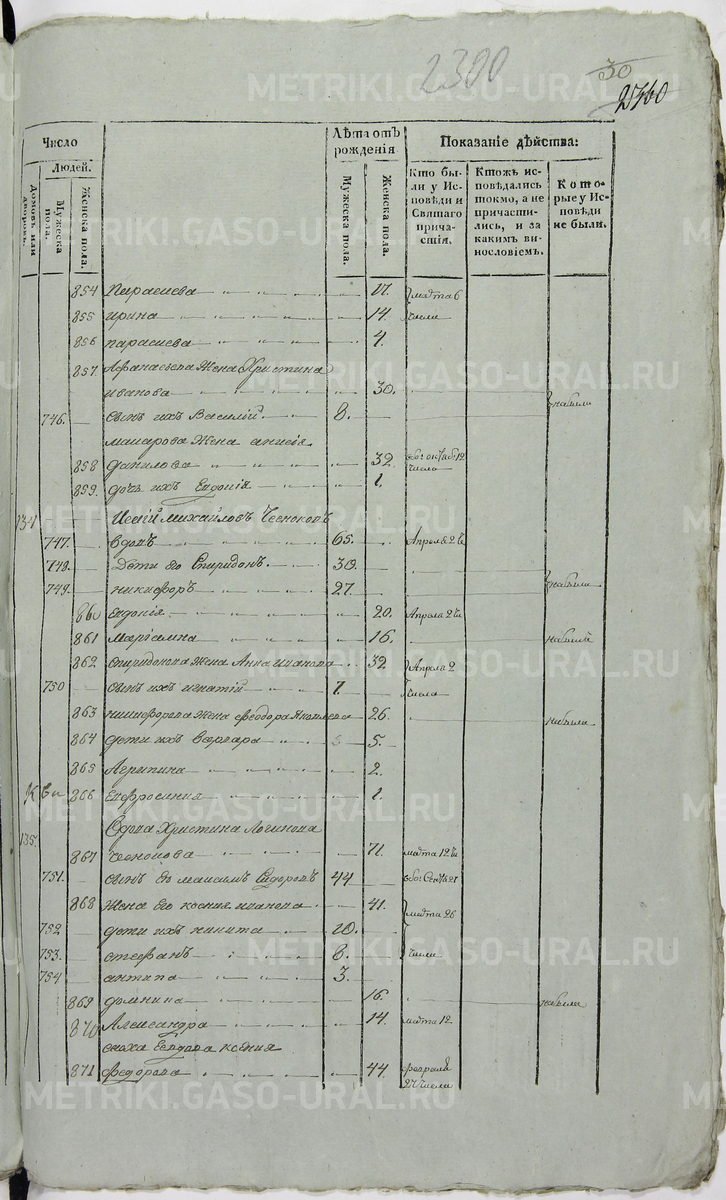 2300
30
25460
Число
Людей.
Домовъ или дворовъ.
Мужеска пола.
Женска пола.
Лѣта отъ рожденія
Мужеска пола.
Женска пола.
Показаніе дѣйства:
Кто были у Исповѣди и Святаго причастія.
Ктожъ исповѣдались токмо, а не причастились, и за какимъ винословіемъ.
Которые у Исповѣди не были.
854 Парасиева 17. марта 6
855 ирина 14. числа
856 парасиева 4.
857 Афанасьева Жена Христина
иванова 30. небыли
746. сынъ ихъ Василій 8.
макарова Жена анисія
858 данилова 32. числа
859. дочь ихъ Евдокія 1.
134 Михайловъ Чесноковъ
747. вдовъ 65. Апреля 2 чи
748. Дети его Спиридонъ. 30.
749. никифоръ 27. небыли
860 Евдокія 20. Апреля 2 чи
861 Маріамна 16. небыла
862. Спиридонова Жена Анна иванова 32. Апреля 2
750 сынъ ихъ игнатій 7. числа
863 никифорова Жена феодора Яковлева 26. небыла
864 дети ихъ варвара 5.
865 Агрипина 2.
866 Евфросиния 1.
135. Вдова Христина Логинова
867 Чеснокова 71. марта 12 чи
751. сынъ ея максимъ Сидоровъ 44
868 Жена Его ксения иванова 41. марта 26
752. дети ихъ никита 20.
753. стефанъ 6. числа
754 антипа 3.
869 домнина 16. небыла
870 Александра 14. марта 12
сноха Евдова ксения
871 федорова 44 февраля
27 числа
METRIKI.GASO-URAL.RU